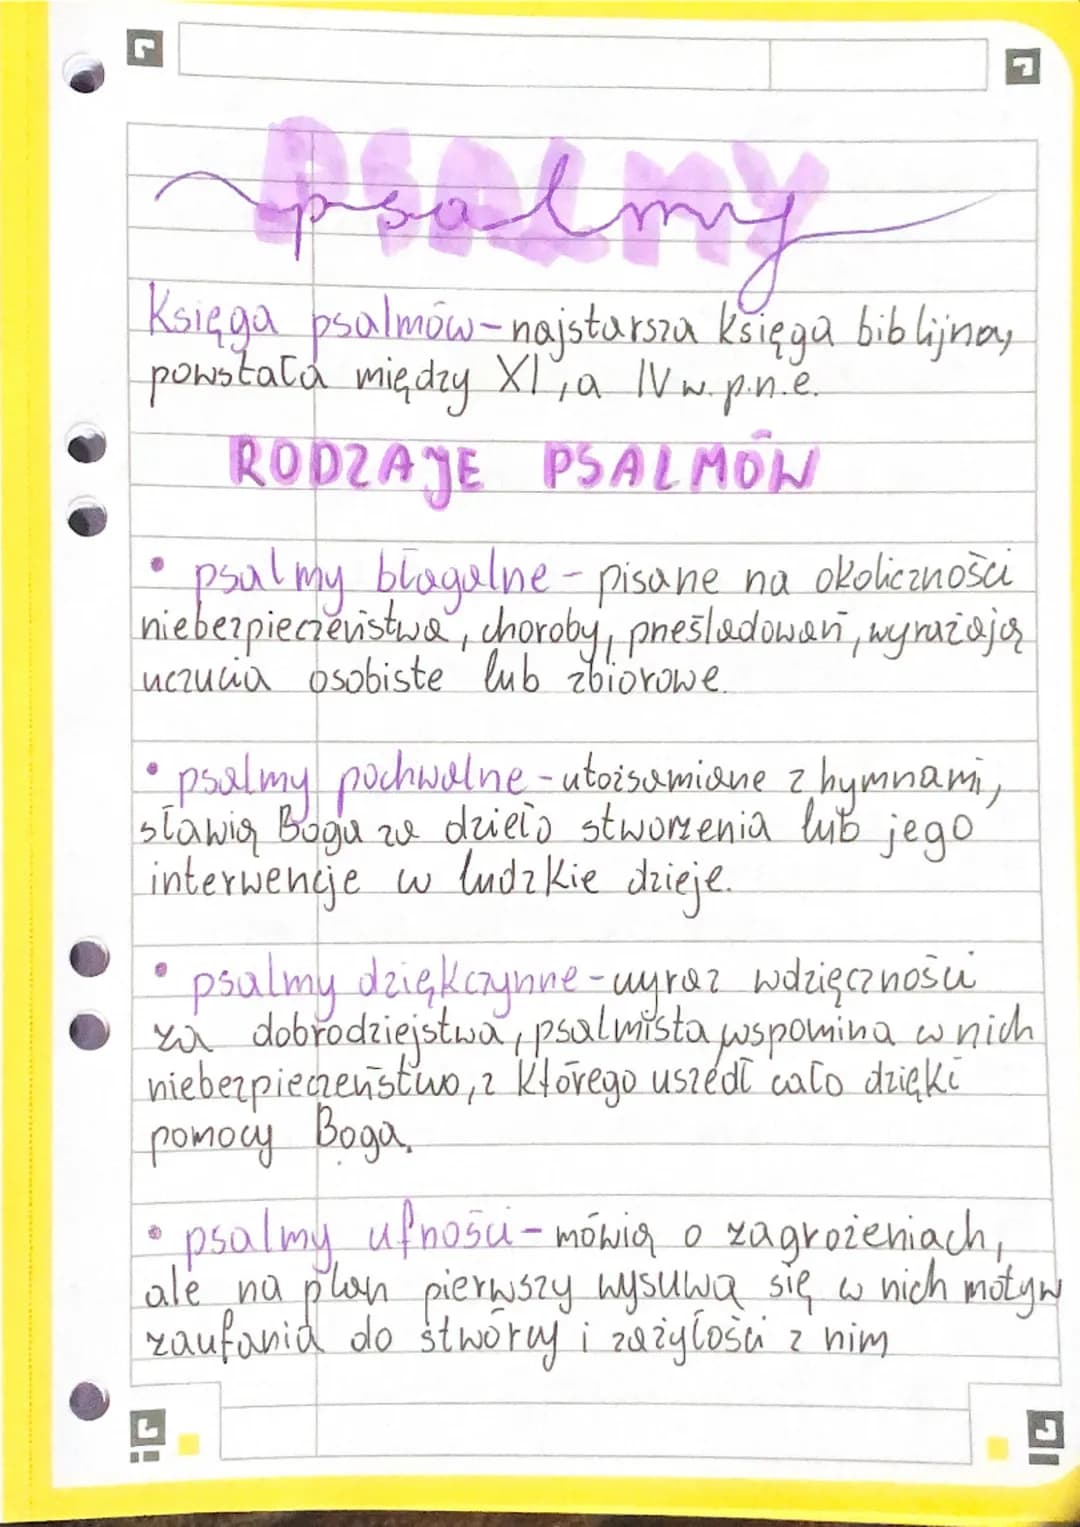 PSALMY
psalmy
Księga psalmów - najstarsza księga biblijna,
powstała między XI, a IV w. p.n.e.
RODZAJE PSALMÓW
• psalmy błagalne - pisane na okoliczności
niebezpieczeństwa, choroby, prześladowań, wyrażają
uczucia osobiste lub zbiorowe.
• psalmy pochwalne - utożsamiane z hymnami,
sławią Boga za dzieło stworzenia lub jego
interwencje w ludzkie dzieje.
• psalmy dziękczynne - wyraz wdzięczności
za dobrodziejstwa, psalmista wspomina w nich
niebezpieczeństwo, z którego uszedł cało dzięki
pomocy Boga.
• psalmy ufności - mówią o zagrożeniach,
ale na plan pierwszy wysuwa się w nich motyw
zaufania do stwórcy i zażyłości z nim